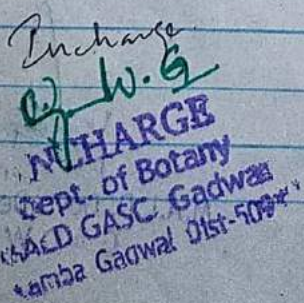 Incharge
INCHARGE
Dept. of Botany
MALD GASC Gadwal
Gadwal Dist-509